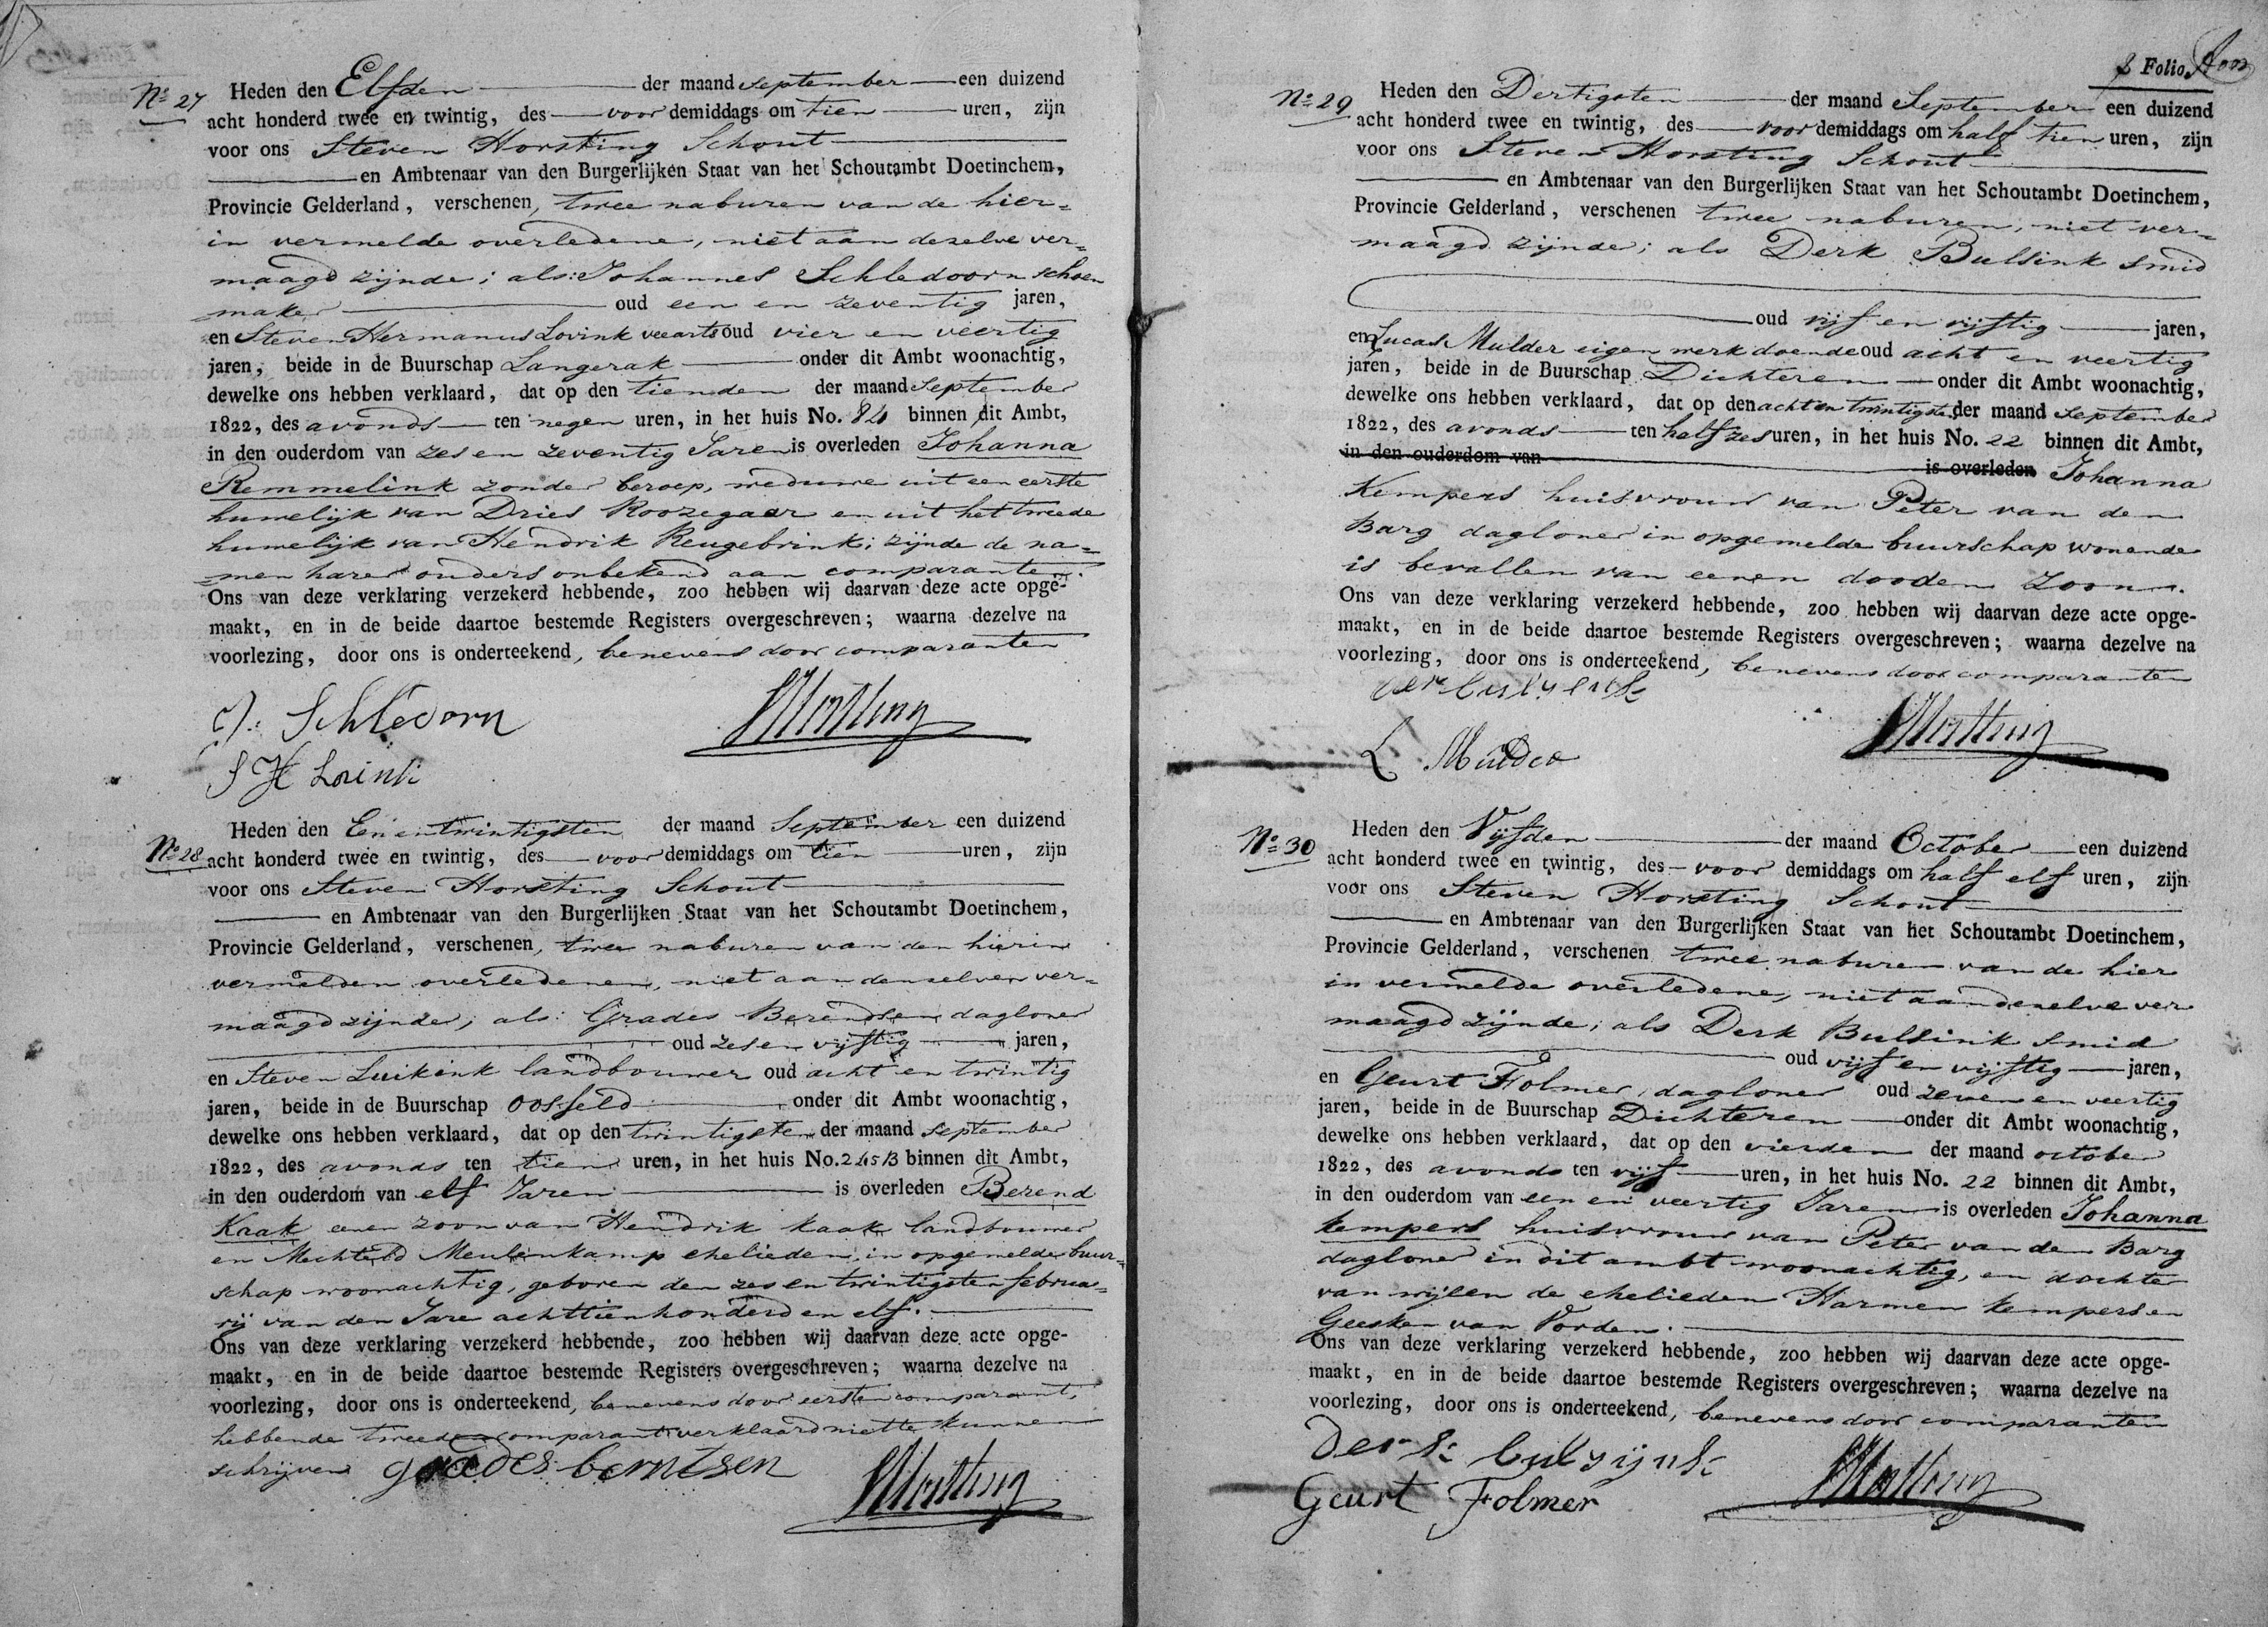 No 27
Heden den Elfden der maand September een duizend
acht honderd twee en twintig, des voor demiddags om tien uren, zijn
voor ons Steven Horsting Schout
en Ambtenaar van den Burgerlijken Staat van het Schoutambt Doetinchem,
Provincie Gelderland, verschenen, twee naburen van de hier=
in vermelde overledene, niet aan dezelve ver=
maagd zijnde; als: Johannes Schledoorn schoen
maker oud een en zeventig jaren,
en Steven Hermanus Lovink veearts oud vier en veertig
jaren, beide in de Buurschap Langerak onder dit Ambt woonachtig,
dewelke ons hebben verklaard, dat op den tienden der maand September
1822, des avonds ten negen uren, in het huis No. 84 binnen dit Ambt,
in den ouderdom van zes en zeventig Jaren is overleden Johanna
Remmelink zonder beroep, weduwe uit een eerste
huwelijk van Dries Roozegaar en uit het tweede
huwelijk van Hendrik Reugebrink; zijnde de na=
men harer ouders onbekend aan comparanten.
Ons van deze verklaring verzekerd hebbende, zoo hebben wij daarvan deze acte opge-
maakt, en in de beide daartoe bestemde Registers overgeschreven; waarna dezelve na
voorlezing, door ons is onderteekend, benevens door comparanten
J: Schledorn
SHorsting
S H Lovink
No 28
Heden den Een entwintigsten der maand September een duizend
acht honderd twee en twintig, des voor demiddags om tien uren, zijn
voor ons Steven Horsting Schout
en Ambtenaar van den Burgerlijken Staat van het Schoutambt Doetinchem,
Provincie Gelderland, verschenen, twee naburen van den hierin
vermelden overledenen, niet aan denzelven ver=
maagd zijnde; als: Grades Berendsen dagloner
oud zes en vijftig jaren,
en Steven Luikink landbouwer oud acht en twintig
jaren, beide in de Buurschap Oosseld onder dit Ambt woonachtig,
dewelke ons hebben verklaard, dat op den twintigsten der maand September
1822, des avonds ten tien uren, in het huis No. 245 B binnen dit Ambt,
in den ouderdom van elf Jaren is overleden Berend
Kaak eenen zoon van Hendrik Kaak landbouwer
en Mechteld Meulenkamp ehelieden in opgemelde buur=
schap woonachtig, geboren den zes en twintigsten februa=
rij van den Jare achttienhonderd en elf.
Ons van deze verklaring verzekerd hebbende, zoo hebben wij daarvan deze acte opge-
maakt, en in de beide daartoe bestemde Registers overgeschreven; waarna dezelve na
voorlezing, door ons is onderteekend, benevens door eersten comparant,
hebbende tweede comparant verklaard niet te kunnen
schrijven grades berntsen
SHorsting
Folio
No 29
Heden den Dertigsten der maand September een duizend
acht honderd twee en twintig, des voor demiddags om half tien uren, zijn
voor ons Steven Horsting Schout
en Ambtenaar van den Burgerlijken Staat van het Schoutambt Doetinchem,
Provincie Gelderland, verschenen twee naburen, niet ver=
maagd zijnde; als Derk Bulsink smid
oud vijf en vijftig jaren,
en Lucas Mulder eigen werk doende oud acht en veertig
jaren, beide in de Buurschap Dichteren onder dit Ambt woonachtig,
dewelke ons hebben verklaard, dat op den acht en twintigsten der maand September
1822, des avonds ten half zes uren, in het huis No. 22 binnen dit Ambt,
in den ouderdom van is overleden Johanna
Kempers huisvrouw van Peter van den
Barg dagloner in opgemelde buurschap wonende
is bevallen van eenen dooden zoon.
Ons van deze verklaring verzekerd hebbende, zoo hebben wij daarvan deze acte opge-
maakt, en in de beide daartoe bestemde Registers overgeschreven; waarna dezelve na
voorlezing, door ons is onderteekend, benevens door comparanten
SHorsting
L Mulder
No 30
Heden den Vijfden der maand October een duizend
acht honderd twee en twintig, des voor demiddags om half elf uren, zijn
voor ons Steven Horsting Schout
en Ambtenaar van den Burgerlijken Staat van het Schoutambt Doetinchem,
Provincie Gelderland, verschenen twee naburen van de hier
in vermelde overledene, niet aan dezelve ver
maagd zijnde; als Derk Bulsink smid
oud vijf en vijftig jaren,
en Geurt Folmer, dagloner oud zeven en veertig
jaren, beide in de Buurschap Dichteren onder dit Ambt woonachtig,
dewelke ons hebben verklaard, dat op den vierden der maand october
1822, des avonds ten vijf uren, in het huis No. 22 binnen dit Ambt,
in den ouderdom van een en veertig Jaren is overleden Johanna
kempers huisvrouw van Peter van den Barg
dagloner in dit ambt woonachtig, en dochter
van wijlen de ehelieden Harmen kempers en
Geesken van Vorden.
Ons van deze verklaring verzekerd hebbende, zoo hebben wij daarvan deze acte opge-
maakt, en in de beide daartoe bestemde Registers overgeschreven; waarna dezelve na
voorlezing, door ons is onderteekend, benevens door comparanten
Derk bulsijnk
SHorsting
Geurt Folmer